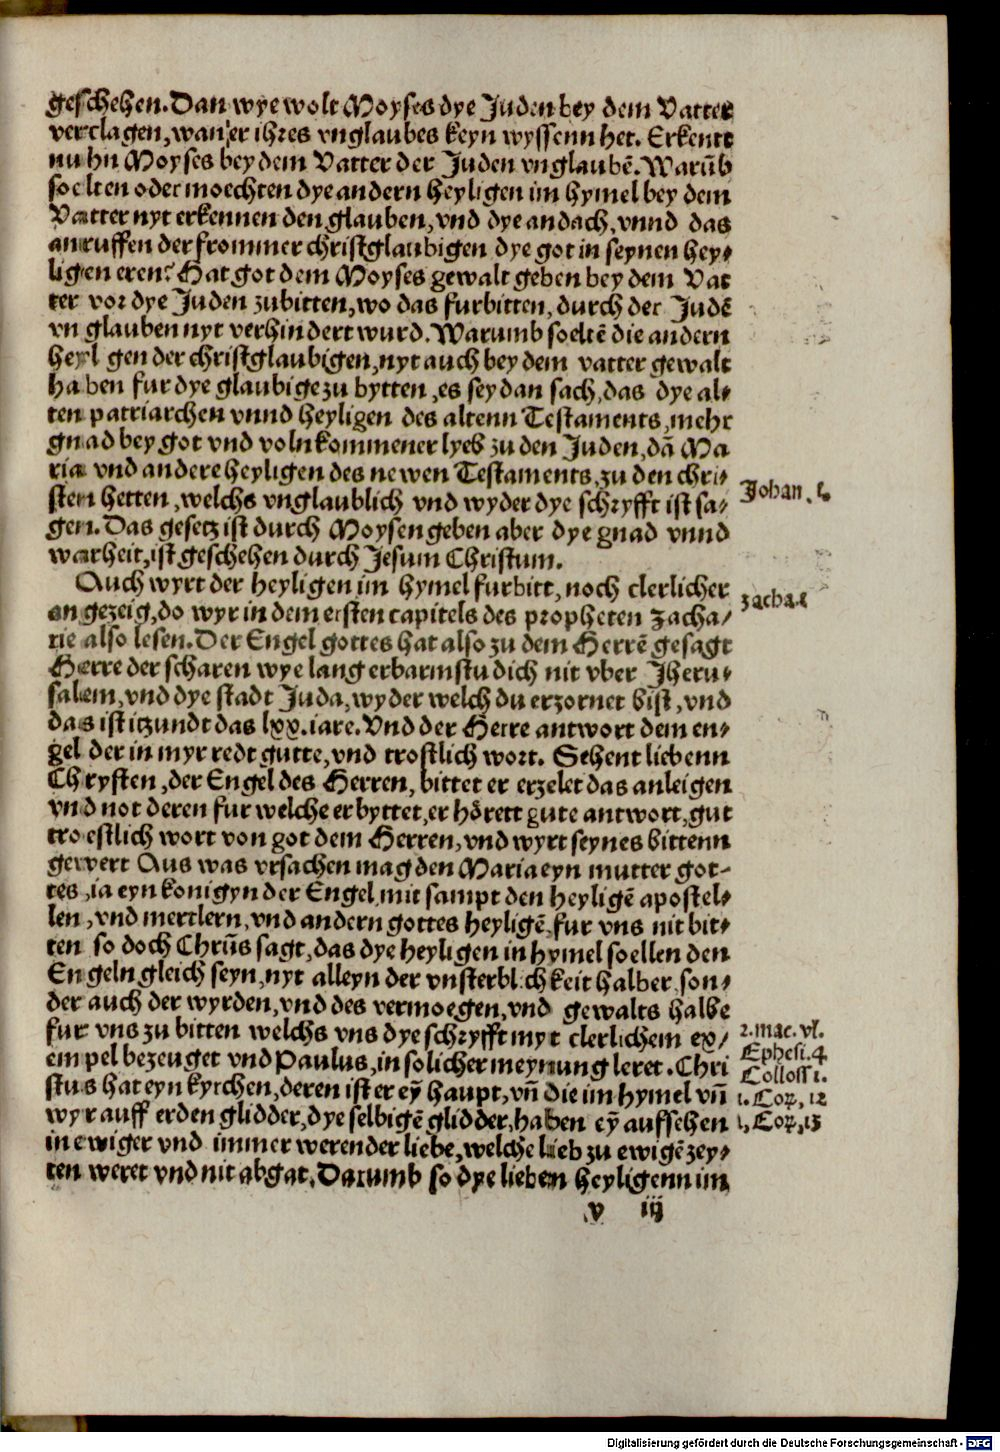 geschehen. Dan wye wolt Moyses dye Juden bey dem Vatter
verclagen, wan er ihres vnglaubes keyn wyssenn het. Erkentt
nu hn Moyses bey dem Vatter der Juden vnglaubē. Warūb
soelten oder moechten dye andern heyligen im hymel bey dem
Vatter nyt erkennen den glauben, vnd dye andach, vnnd das
anruffen der frommer christglaubigen dye got in seynen hey-
ligen eren? Hat got dem Moyses gewalt geben bey dem Vat
ter vor dye Juden zubitten, wo das furbitten, durch der Judē
vn glauben nyt verhindert wurd. Warumb soeltē die andern
heyl gen der christglaubigen, nyt auch bey dem vatter gewalt
haben fur dye glaubige zu bytten, es sey dan sach, das dye al-
ten patriarchen vnnd heyligen des altenn Testaments, mehr
gnad bey got vnd volnkommener lyeb zu den Juden, dā Ma
ria vnd andere heyligen des newen Testaments, zu den chri-
sten hetten, welchs vnglaublich vnd wyder dye schryfft ist sa-
Johan. 1.
gen. Das gesetz ist durch Moysen geben aber dye gnad vnnd
warheit, ist geschehen durch Jesum Christum.
Auch wyrt der heyligen im hymel furbitt, noch clerlicher
angezeig, do wyr in dem ersten capitels des propheten Zacha-
zacha. 1
rie also lesen. Der Engel gottes hat also zu dem Herrē gesagt
Herre der scharen wye lang erbarmstu dich nit vber Jheru-
salem, vnd dye stadt Juda, wyder welch du erzornet bist, vnd
das ist itzundt das lxx. iare. Vnd der Herre antwort dem en-
gel der in myr redt gutte, vnd trostlich wort. Sehent liebenn
Chrysten, der Engel des Herren, bittet er erzelet das anleigen
vnd not deren fur welche er byttet, er hörett gute antwort, gut
troestlich wort von got dem Herren, vnd wyrt seynes bittenn
gewert Aus was vrsachen mag den Maria eyn mutter got-
tes, ia eyn konigyn der Engel, mit sampt den heyligē apostel-
len, vnd mertlern, vnd andern gottes heyligē, fur vns nit bit-
ten so doch Chrūs sagt, das dye heyligen in hymel soellen den
Engeln gleich seyn, nyt alleyn der vnsterbl.chkeit halber, son-
der auch der wyrden, vnd des vermoegen, vnd gewalts halbe
fur vns zu bitten welchs vns dye schryfft myt clerlichem ex-
2. mac. vl.
em pel bezeuget vnd Paulus, in solicher meynung leret. Chri
Ephesi. 4
stus hat eyn kyrchen, deren ist er eȳ haupt, vn̄ die im hymel vn̄
Colloss 1.
wyr auff erden glidder, dye selbigē glidder, haben eȳ auffsehen
1. Cor, 12
in ewiger vnd immer werender liebe, welche lieb zu ewigē zey-
1, Cor, 13
ten weret vnd nit abgat. Darumb so dye lieben heyligenn im
v iij
Digitalisierung gefördert durch die Deutsche Forschungsgemeinschaft - DFG